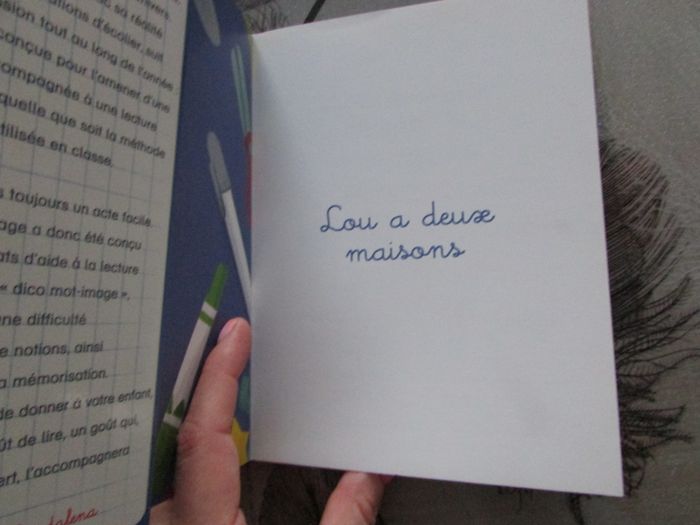 sa réalité
d'écolier, suit
tout au long de l'année
conçue pour l'amener d'une
à une lecture
quelle que soit la méthode
utilisée en classe.
toujours un acte facile.
a donc été conçu
d'aide à la lecture
« dico mot-image »,
une difficulté
notions, ainsi
mémorisation.
de donner à votre enfant,
de lire, un goût qui,
l'accompagnera
Lou a deux
maisons